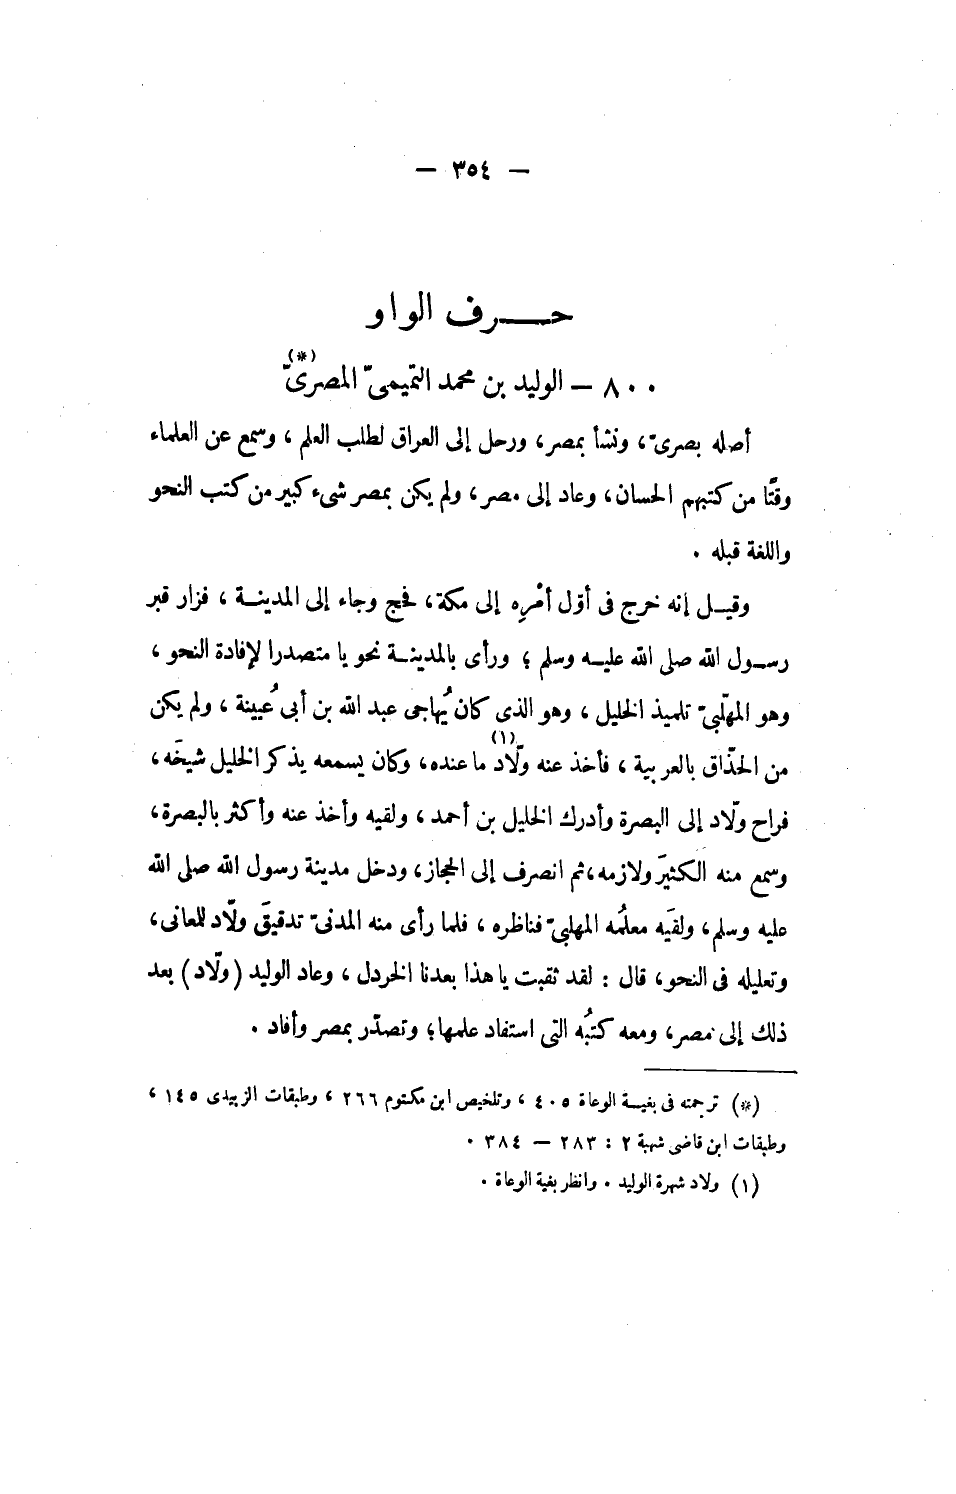 — ٣٥٤ —
حـــرف الواو
٨٠٠ — الوليد بن محمد التميمىّ المصرىّ (*)
أصله بصرىّ، ونشأ بمصر، ورحل إلى العراق لطلب العلم، وسمع عن العلماء
وقتًا من كتبهم الحسان، وعاد إلى مصر، ولم يكن بمصر شىء كبير من كتب النحو
واللغة قبله .
وقيــل إنه خرج فى أوّل أمْرِه إلى مكة، فحج وجاء إلى المدينــة، فزار قبر
رســول الله صلى الله عليــه وسلم؛ ورأى بالمدينــة نحويا متصدرا لإفادة النحو،
وهو المهلّبىّ تلميذ الخليل، وهو الذى كان يُهاجى عبد الله بن أبى عُيينة، ولم يكن
من الحذّاق بالعربية، فأخذ عنه ولّاد (١) ما عنده، وكان يسمعه يذكر الخليل شيخَه،
فراح ولّاد إلى البصرة وأدرك الخليل بن أحمد، ولقيه وأخذ عنه وأكثر بالبصرة،
وسمع منه الكثيرَ ولازمه، ثم انصرف إلى الحجاز، ودخل مدينة رسول الله صلى الله
عليه وسلم، ولقيَه معلّمُه المهلبىّ فناظره، فلما رأى منه المدنىّ تدقيقَ ولّاد للمعانى،
وتعليله فى النحو، قال : لقد ثقبت يا هذا بعدنا الخردل، وعاد الوليد (ولّاد) بعد
ذلك إلى مصر، ومعه كتبُه التى استفاد علمها؛ وتصدّر بمصر وأفاد .
(*) ترجمته فى بغيــة الوعاة ٤٠٥، وتلخيص ابن مكتوم ٢٦٦، وطبقات الزبيدى ١٤٥،
وطبقات ابن قاضى شهبة ٢ : ٢٨٣ — ٣٨٤ .
(١) ولاد شهرة الوليد . وانظر بغية الوعاة .